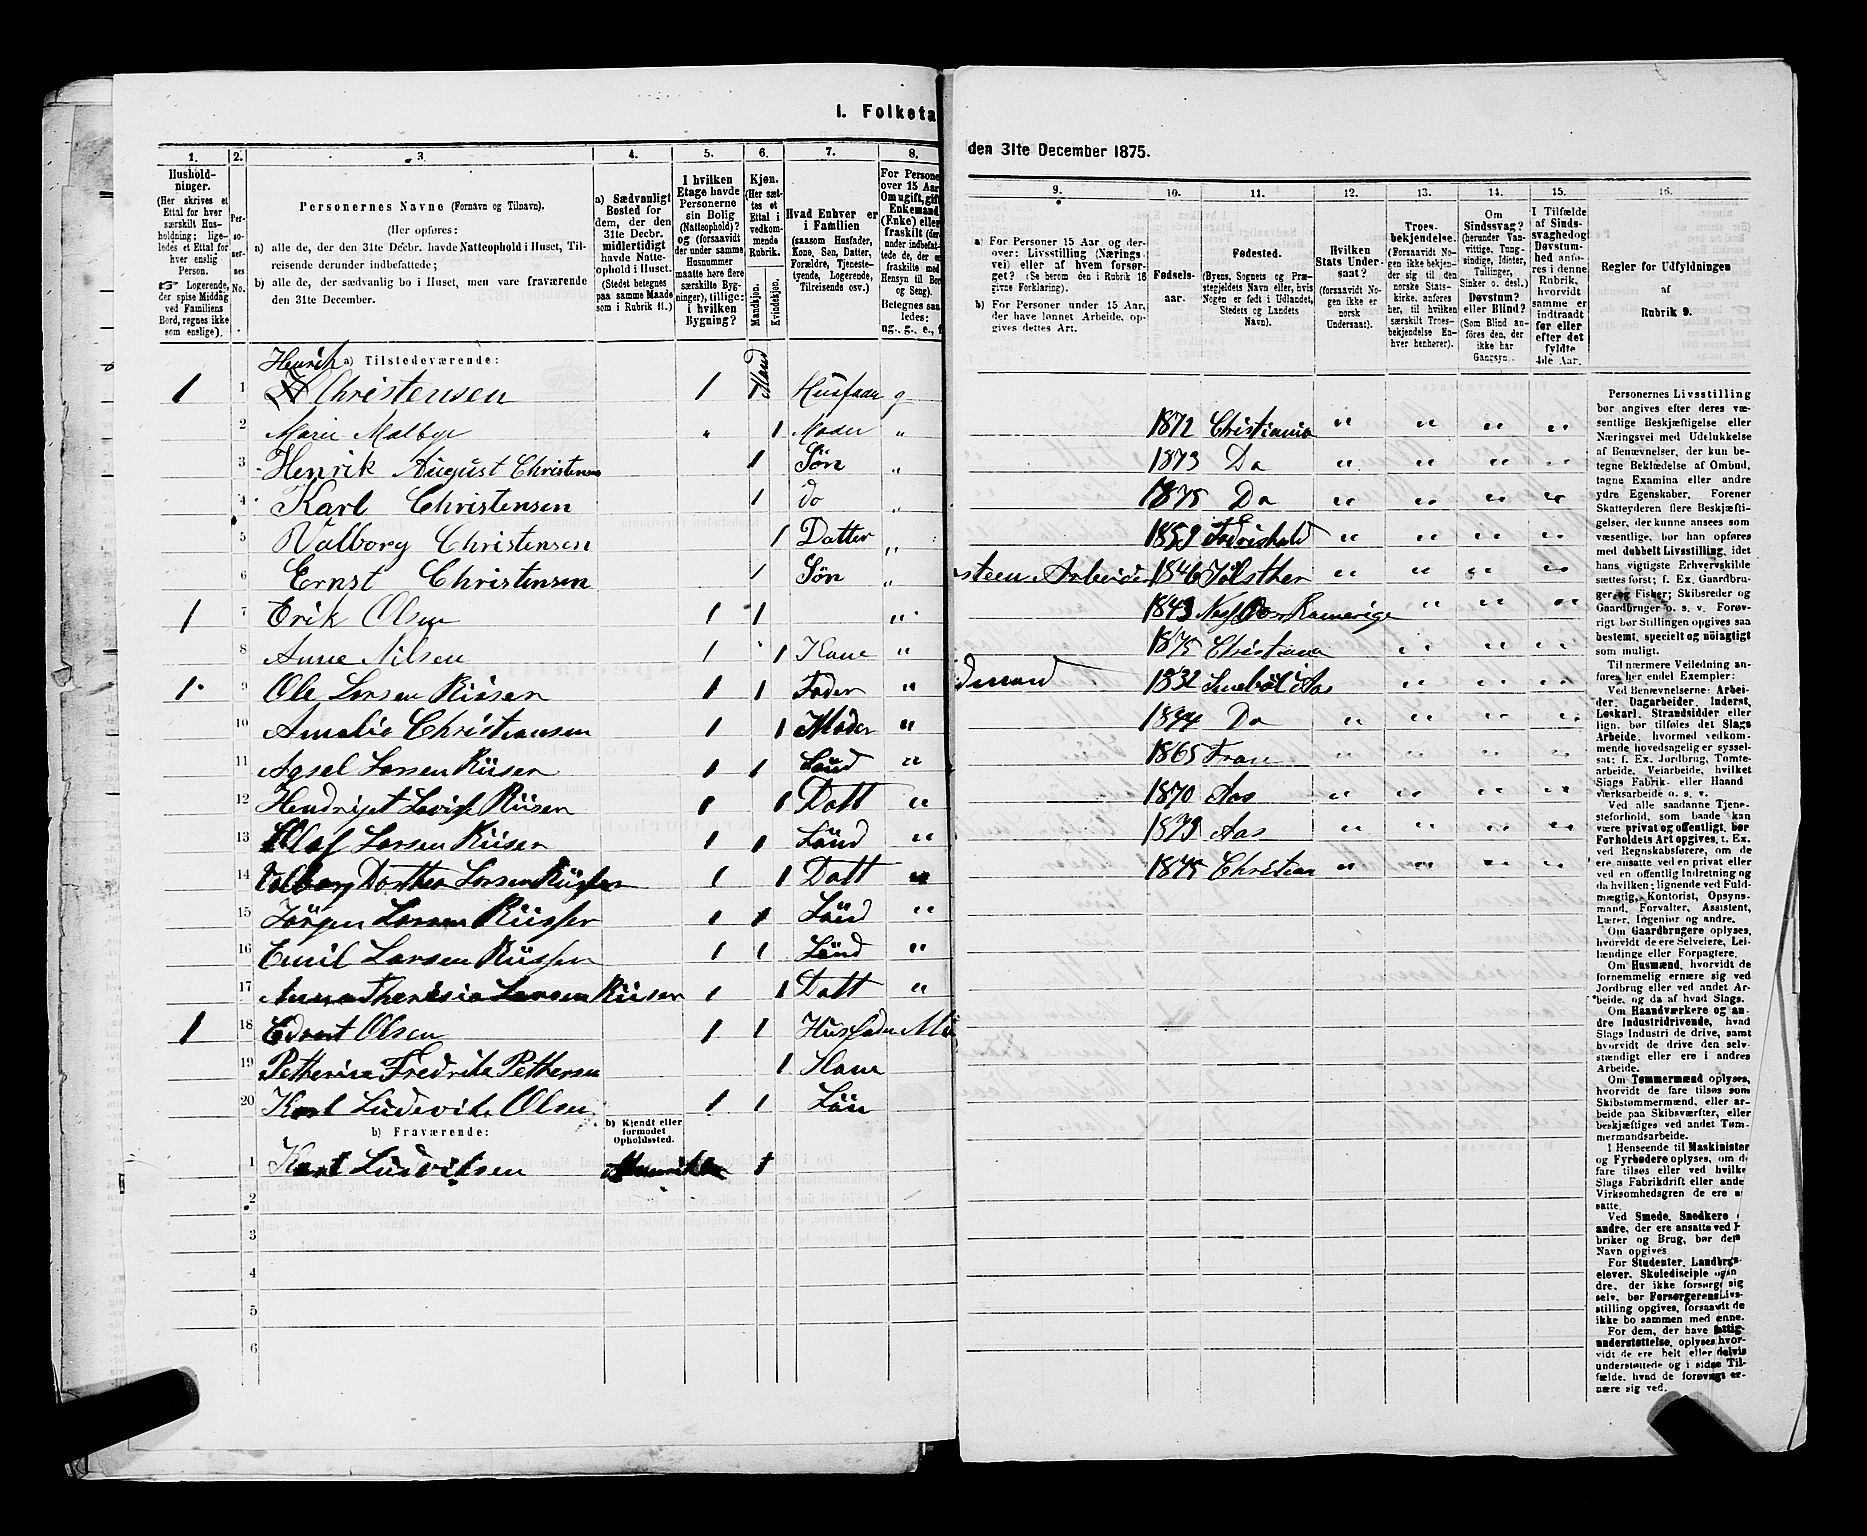 I. Folketa
den 31te December 1875.
1.
2.
3.
4.
5.
6.
7.
8.
Hushold-
ninger.
(Her skrives et
Ettal for hver
særskilt Hus-
holdning; lige-
ledes et Ettal for
hver enslig
Person.
☞ Logerende,
der spise Middag
ved Familiens
Bord, regnes ikke
som enslige).
Per-
so-
ner-
nes
No.
Personernes Navne (Fornavn og Tilnavn).
(Her opføres:
a) alle de, der den 31te Decbr. havde Natteophold i Huset, Til-
reisende derunder indbefattede;
b) alle de, der sædvanlig bo i Huset, men vare fraværende
den 31te December.
a) Sædvanligt
Bosted for
dem, der den
31te Decbr.
midlertidigt
havde Natte-
ophold i Huset.
(Stedet betegnes
paa samme Maade
som i Rubrik 11.)
I hvilken
Etage havde
Personerne
sin Bolig
(Natteophold)?
og (forsaavidt
der under samme
Husnummer
maatte høre flere
særskilte Byg-
ninger), tillige:
i hvilken
Bygning?
Kjøn.
(Her sæt-
tes et
Ettal i
vedkom-
mende
Rubrik.
Mandskjøn.
Kvindekjøn.
Hvad Enhver er
i Familien
(saasom Husfader,
Kone, Søn, Datter,
Forældre, Tjeneste-
tyende, Logerende,
Tilreisende osv.)
For Persone
over 15 Aar
Om ugift, gift
Enkemand
(Enke) eller
fraskilt (der
under indbefat-
tede de, der er
fraskilte med
Hensyn til Bor
og Seng).
Betegnes saa
ledes:
ug., g., e., f.
a) Tilstedeværende:
Henrik
1 1 Christensen 1 1 Mand Husfader g
2 Marie Malbye " 1 Moder "
3 Henrik August Christensen 1 Søn "
4 Karl Christensen 1 do "
5 Valborg Christensen 1 Datter "
6 Ernst Christensen 1 Søn "
1 7 Erik Olsen 1 1 "
8 Anne Nilsen 1 1 Kone "
1 9 Ole Larsen Riiser 1 1 Fader "
10 Amalie Christiansen 1 1 Moder "
11 Agsel Larsen Riiser 1 1 "
12 Riiser 1 1 Datt "
13 Olaf Larsen Riiser 1 1 "
14 Valborg Dorthea Larsen 1 1 Datt "
15 Jörgen Larsen 1 1 "
16 Emil Larsen 1 1 "
17 Anna Theresia Larsen Riiser 1 1 Datt "
1 18 Edvart Olsen 1 1 Husfader
19 Fredrike Pettersen 1 Kone
20 Karl Ludevik Olsen 1 1
b) Fraværende:
b) Kjendt eller
formodet
Opholdssted.
1 Karl Ludviksen 1
2
3
4
5
6
9.
10.
11.
12.
13.
14.
15.
16.
a) For Personer 15 Aar og der-
over: Livsstilling (Nærings-
vei) eller af hvem forsør-
get? (Se herom den i Rubrik 16
givne Forklaring).
b) For Personer under 15 Aar,
der have lønnet Arbeide, op-
gives dettes Art.
Fødsels-
aar.
Fødested.
(Byens, Sognets og Præ-
stegjeldets Navn eller, hvis
Nogen er født i Udlandet,
Stedets og Landets
Navn).
Hvilken
Stats Under-
saat?
(forsaavidt No-
gen ikke er
norsk
Undersaat).
Troes-
bekjendelse.
(Forsaavidt No-
gen ikke bekjen-
der sig til den
norske Stats-
kirke, anføres
her, til hvilken
særskilt Troes-
bekjendelse En-
hver henhører).
Om
Sindssvag?
(herunder Van-
vittige, Tung-
sindige, Idioter,
Tullinger,
Sinker o. desl.)
Døvstum?
eller Blind?
(Som Blind an-
føres den, der
ikke har
Gangsyn.
I Tilfælde
af Sinds-
svaghed og
Døvstum-
hed anfø-
res i denne
Rubrik,
hvorvidt
samme er
indtraadt
før eller
efter det
fyldte
4de Aar.
Regler for Udfyldningen
af
Rubrik 9.
1872 Christiania " " " "
1873 Do " " " "
1875 Do " " " "
1859 " " " "
Arbeider 1846 " " " "
1843 " " "
1875 Christiania " " " "
1832 Aas " " "
1844 Do " " " "
1865 " " " "
1870 Aas " " " "
1873 Aas " " " "
1845 Christian " " " "
Personernes Livsstilling
bør angives efter deres væ-
sentlige Beskjæftigelse eller
Næringsvei med Udelukkelse
af Benævnelser, der kun be-
tegne Beklædelse af Ombud,
tagne Examina eller andre
ydre Egenskaber. Forener
Skatteyderen flere Beskjæfti-
gelser, der kunne ansees som
væsentlige, bør han opføres
med dobbelt Livsstilling, idet
hans vigtigste Erhvervskilde
sættes først; f. Ex. Gaardbru-
ger og Fisker; Skibsreder og
Gaardbruger o. s. v. Forøv-
rigt bør Stillingen opgives saa
bestemt, specielt og nøiagtigt
som muligt.
Til nærmere Veiledning an-
føres her endel Exempler:
Ved Benævnelserne: Arbei-
der, Dagarbeider, Inderst,
Løskarl, Strandsidder eller
lign. bør tilføies det Slags
Arbeide, hvormed vedkom-
mende hovedsagelig er syssel-
sat; f. Ex. Jordbrug, Tomte-
arbeide, Veiarbeide, hvilket
Slags Fabrik- eller Haand
værksarbeide o. s. v.
Ved alle saadanne Tjene-
steforhold, som baade kan
være privat og offentligt, bør
Forholdets Art opgives, t. Ex.
ved Regnskabsførere, om de
ere ansatte ved en privat eller
ved en offentlig Indretning og
da hvilken; lignende ved Fuld-
mægtig, Kontorist, Opsyns-
mand, Forvalter, Assistent,
Lærer, Ingeniør og andre.
Om Gaardbrugere oplyses,
hvorvidt de ere Selveiere, Lei-
lændinge eller Forpagtere.
Om Husmænd, hvorvidt de
fornemmelig ernære sig ved
Jordbrug eller ved andet Ar-
beide, og da af hvad Slags.
Om Haandværkere og an-
dre Industridrivende, hvad
Slags Industri de drive, samt
hvorvidt de drive den selv-
stændigt eller ere i andres
Arbeide.
Om Tømmermænd oplyses,
hvorvidt de fare tilsøs som
Skibstømmermænd, eller ar-
beide paa Skibsværfter, eller
beskjæftiges ved andet Tøm-
mermandsarbeide.
I Henseende til Maskinister
og Fyrbødere oplyses, om de
fare tilsøs eller ved hvilke
Slags Fabrikdrift eller ande
Virksomhedsgren de ere a
satte.
Ved Smede, Snedkere
andre, der ere ansatte ved F
briker og Brug, bør det
Navn opgives
For Studenter, Landbrugs-
elever, Skoledisciple og an
dre, der ikke forsørge sig
selv, bør Forsørgerens Livs-
stilling opgives, forsaavidt de
ikke bo sammen med denne.
For dem, der have fattig-
understøttelse, oplyses hvor-
vidt de ere helt eller delvis
understøttede og i sidste Til-
fælde, hvad de forøvrigt er-
nære sig ved.